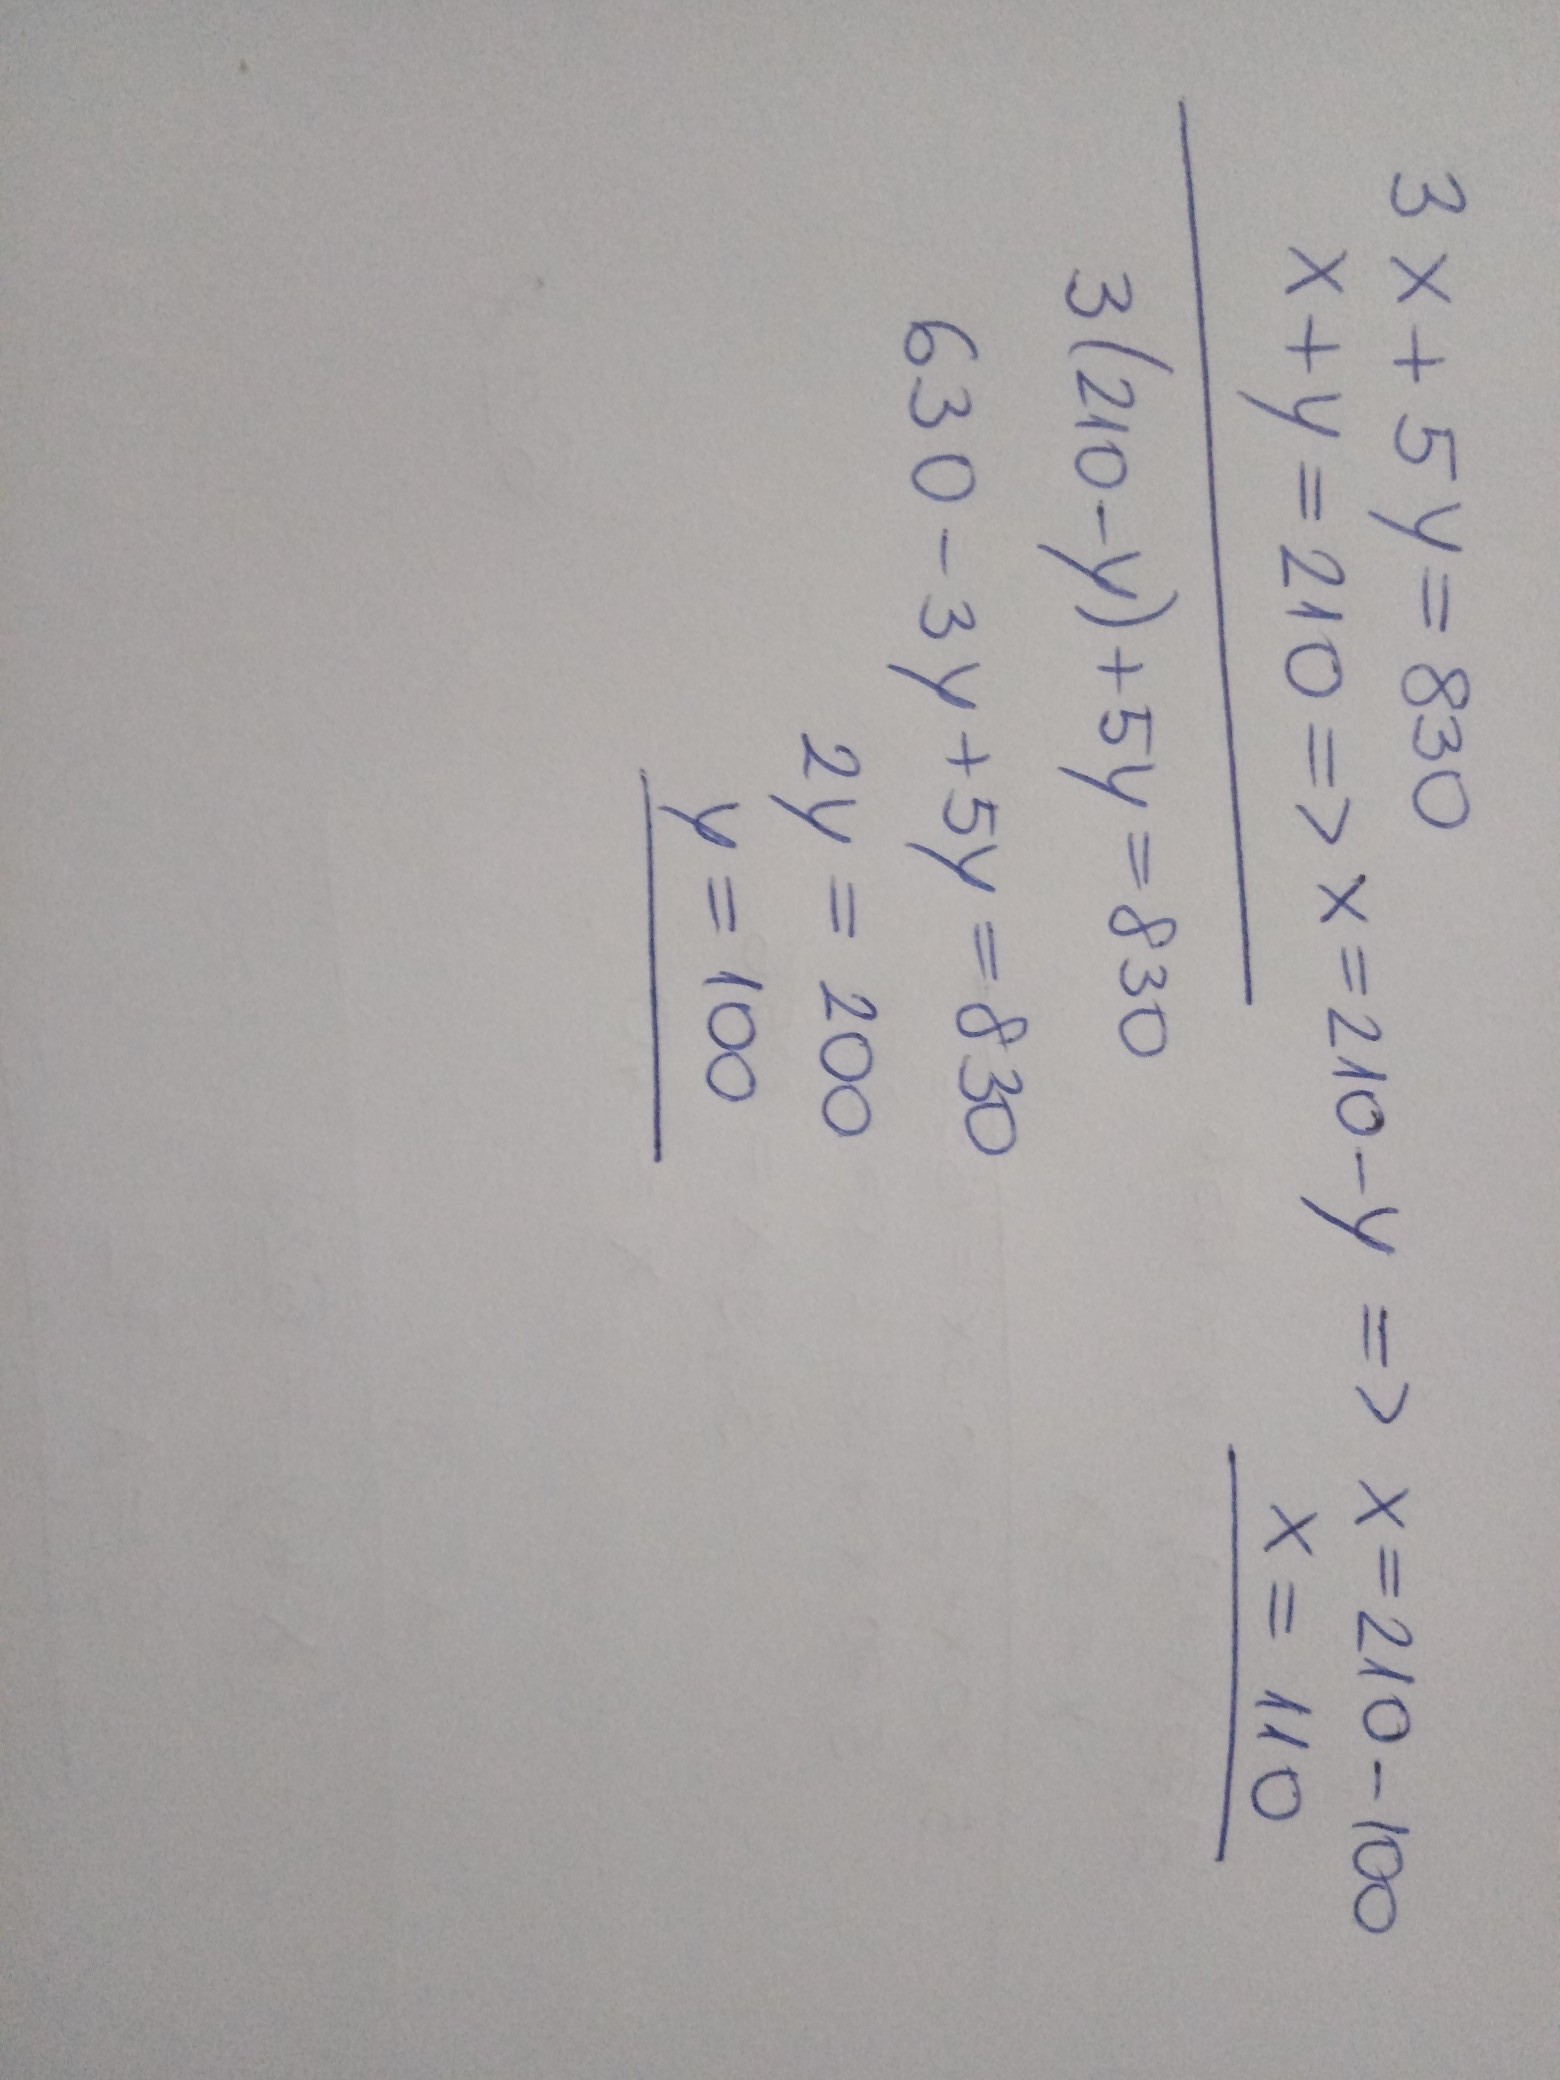 3x+5y=830
x+y=210=>x=210-y => x=210-100
x=110
3(210-y)+5y=830
630-3y+5y=830
2y=200
y=100